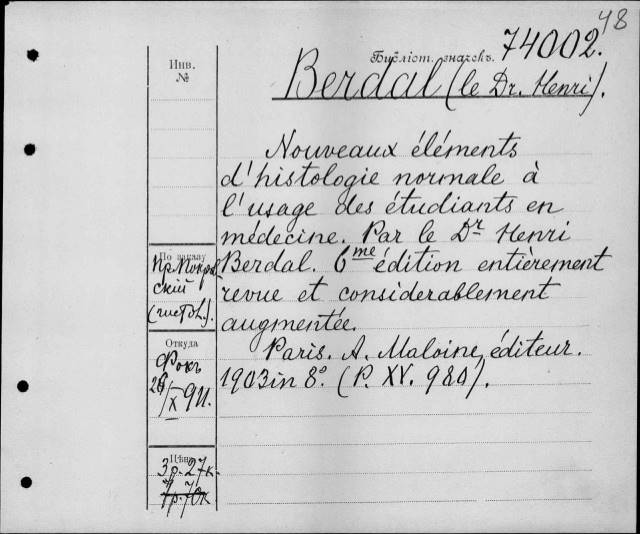 48
Библіот. значокъ. 74002.
Инв.
№
Berdal (le Dr. Henri).
Nouveaux éléments
d'histologie normale à
l'usage des étudiants en
médecine. Par le Dr Henri
Berdal. 6me édition entierement
revue et considerablement
augmentée.
Paris. A. Maloine, éditeur.
1903 in 8°. (P. XV. 980).
По заказу
Пр. Покров
скій
(гистол.).
Откуда
Фокъ
28/X 911.
Цѣна
3 р. 27 к.
7 р. 70 к